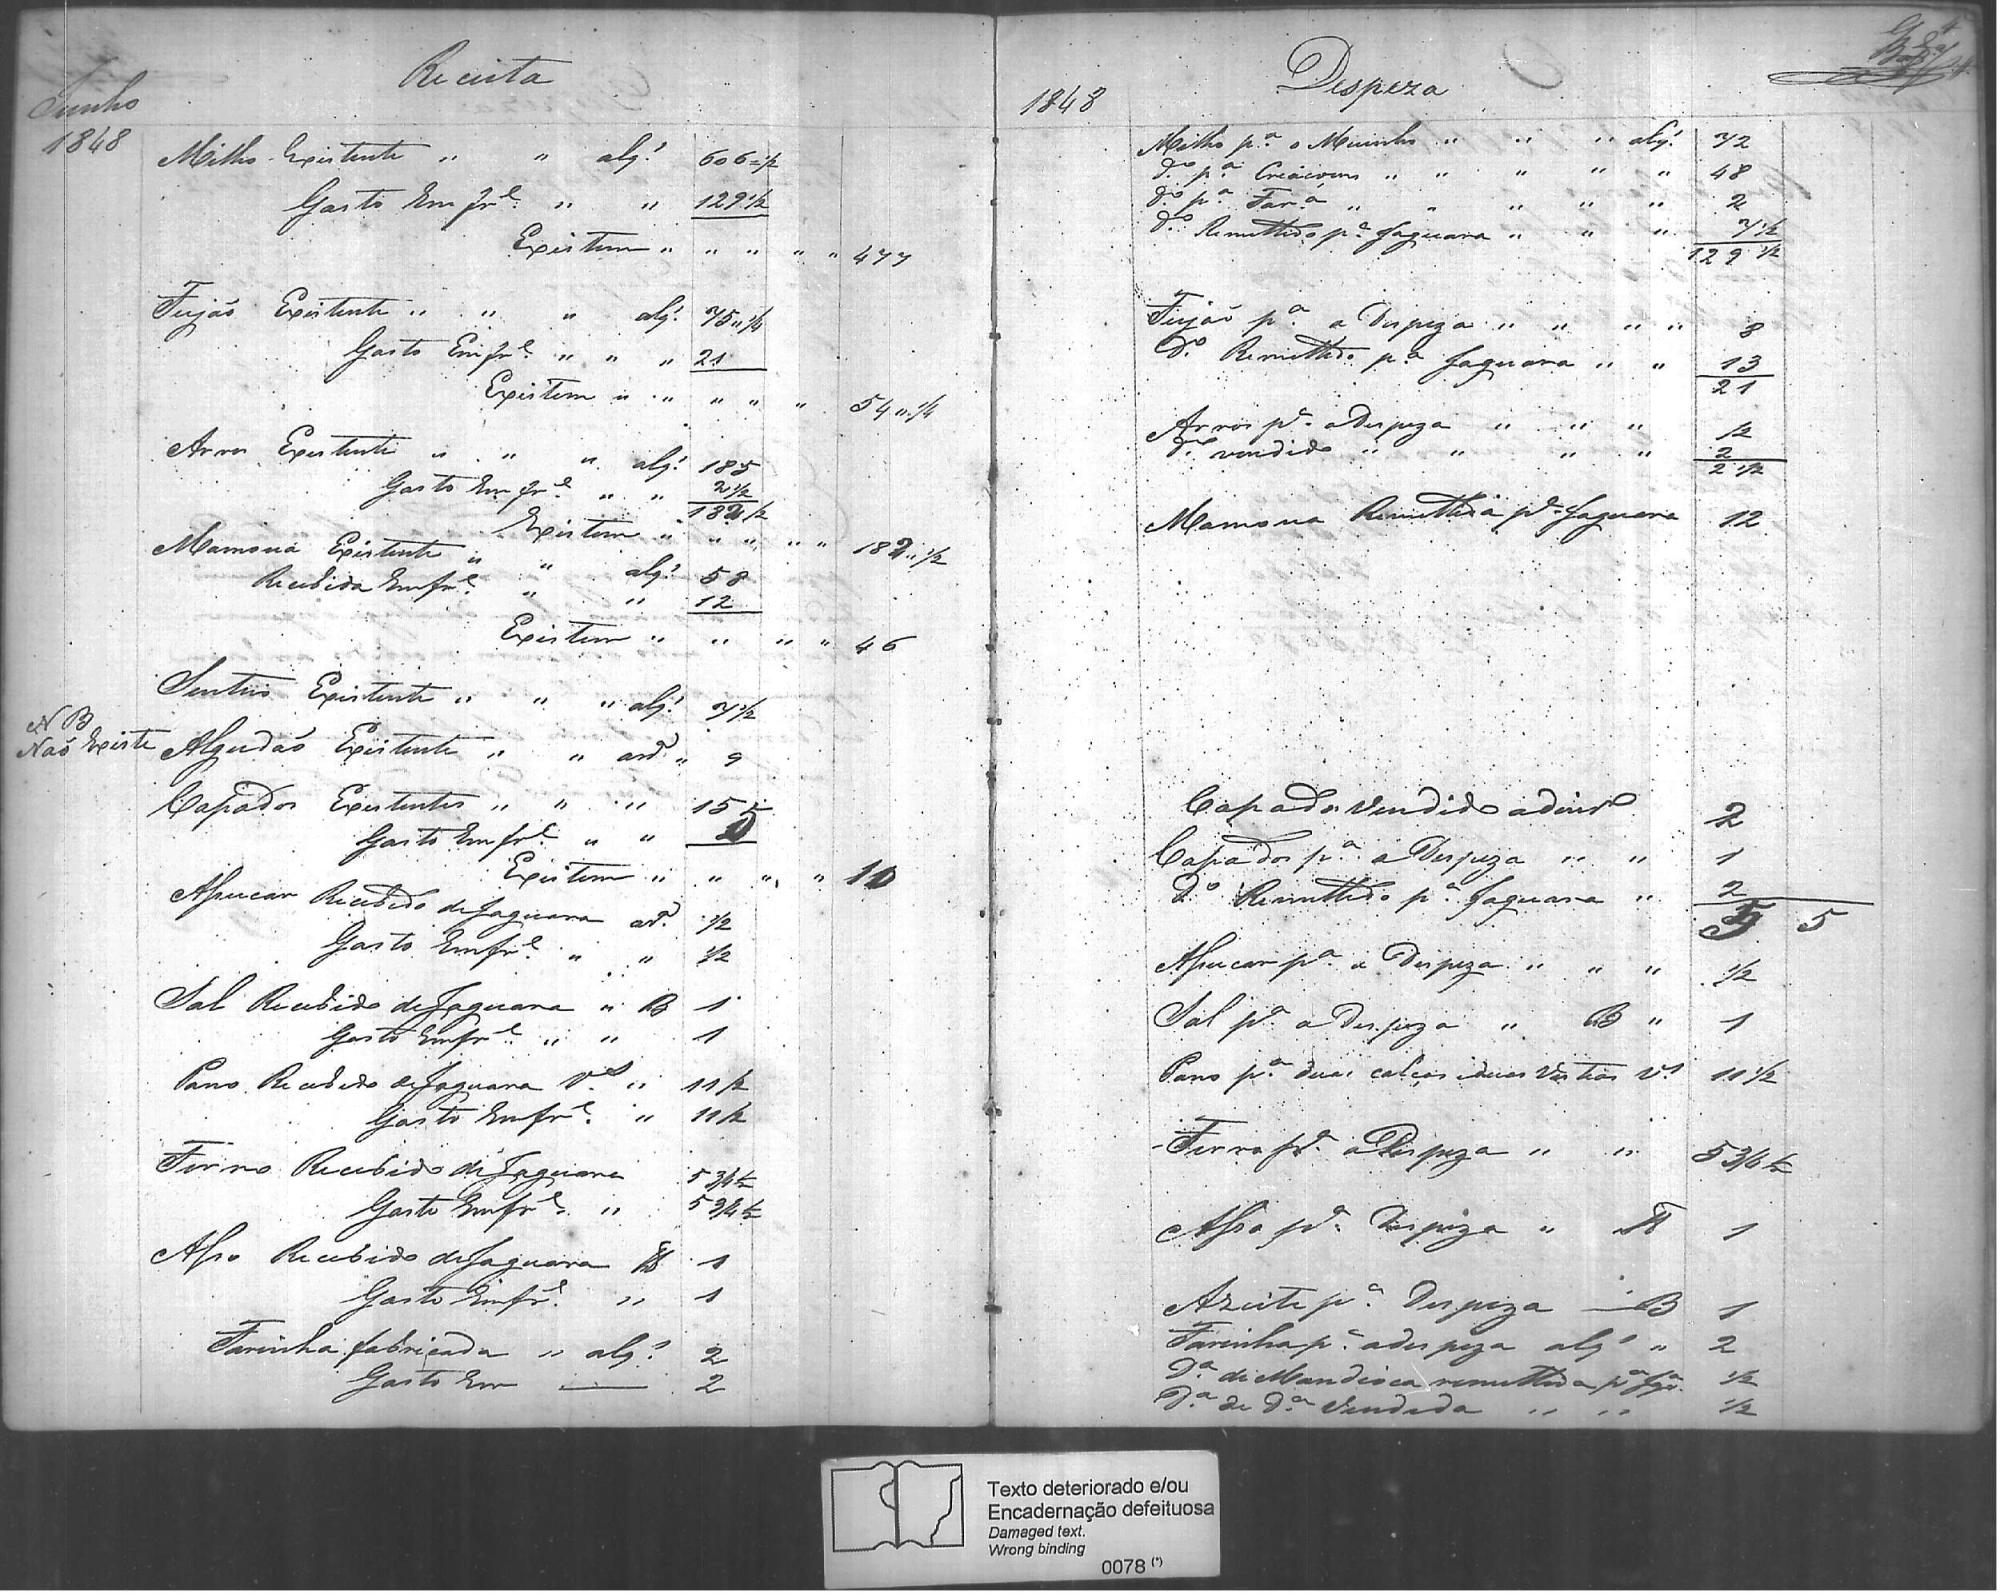 Receita
Junho
1848
Milho Existente " " alqs. 606=1/2
Gasto Em fre. " " 129 1/2
Existem " " " " " 477
Feijão Existente " " " alqs. 75 " 1/4
Gasto Em fre. " " " 21
Existem " " " " " 54 " 1/4
Arros Existente " " " alqs. 185
Gasto Em fre. " " 2 1/2
182 1/2
Existem " " " " " 182 " 1/2
Mamona Existente " " alqs. 58
Recebida Em fre. " " 12
Existem " " " " 46
Senteio Existente " " " alqs. 7 1/2
N B
Não Existe
Algudão Existente " " ard. " 9
Capados Existentes " " " 15
Gasto Em fre. " " 5
Existem " " " " 10
Assucar Recebido de Jaguara ard. 1/2
Gasto Em fre. " " 1/2
Sal Recebido de Jaguara " B 1
Gasto Em fre. " " 1
Pano Recebido de Jaguara Vs. " 11 1/2
Gasto Em fre. " 11 1/2
Ferro Recebido de Jaguara 5 3/4 1/2
Gasto Em fre. " 5 3/4 1/2
Asso Recebido de Jaguara lb 1
Gasto Em fre. " 1
Farinha fabricada " alqs. 2
Gasto Em — 2
Despeza
1848
Milho pa. o Muinho " " " alqs. 72
Do. pa. Criacoens " " " " " 48
Do. pa. Fara. " " " " " 2
Do. Remettido pa. Jaguara " " " 7 1/2
129 1/2
Feijão pa. a Despeza " " " " 8
Do. Remettido pa. Jaguara " " 13
21
Arros pa. a Despeza " " " 1/2
Do. vendido " " " " 2
2 1/2
Mamona Remettida pa. Jaguara 12
Capados Vendido a dinro. 2
Capados pa. a Despeza " " 1
Do. Remettido pa. Jaguara " 2
5 5
Assucar pa. a Despeza " " " 1/2
Sal pa. a Despeza " B " 1
Pano pa. duas calças e duas Vestias Vs. 11 1/2
Ferro pa. a Despeza " " 5 3/4 1/2
Asso pa. Despeza " lb 1
Azeite pa. Despeza — B 1
Farinha pa. a despeza alqs " 2
Da. de Mandioca remettida pa. Jga. 1/2
Da. de Da. Vendida " " 1/2
Texto deteriorado e/ou
Encadernação defeituosa
Damaged text.
Wrong binding
0078 (*)